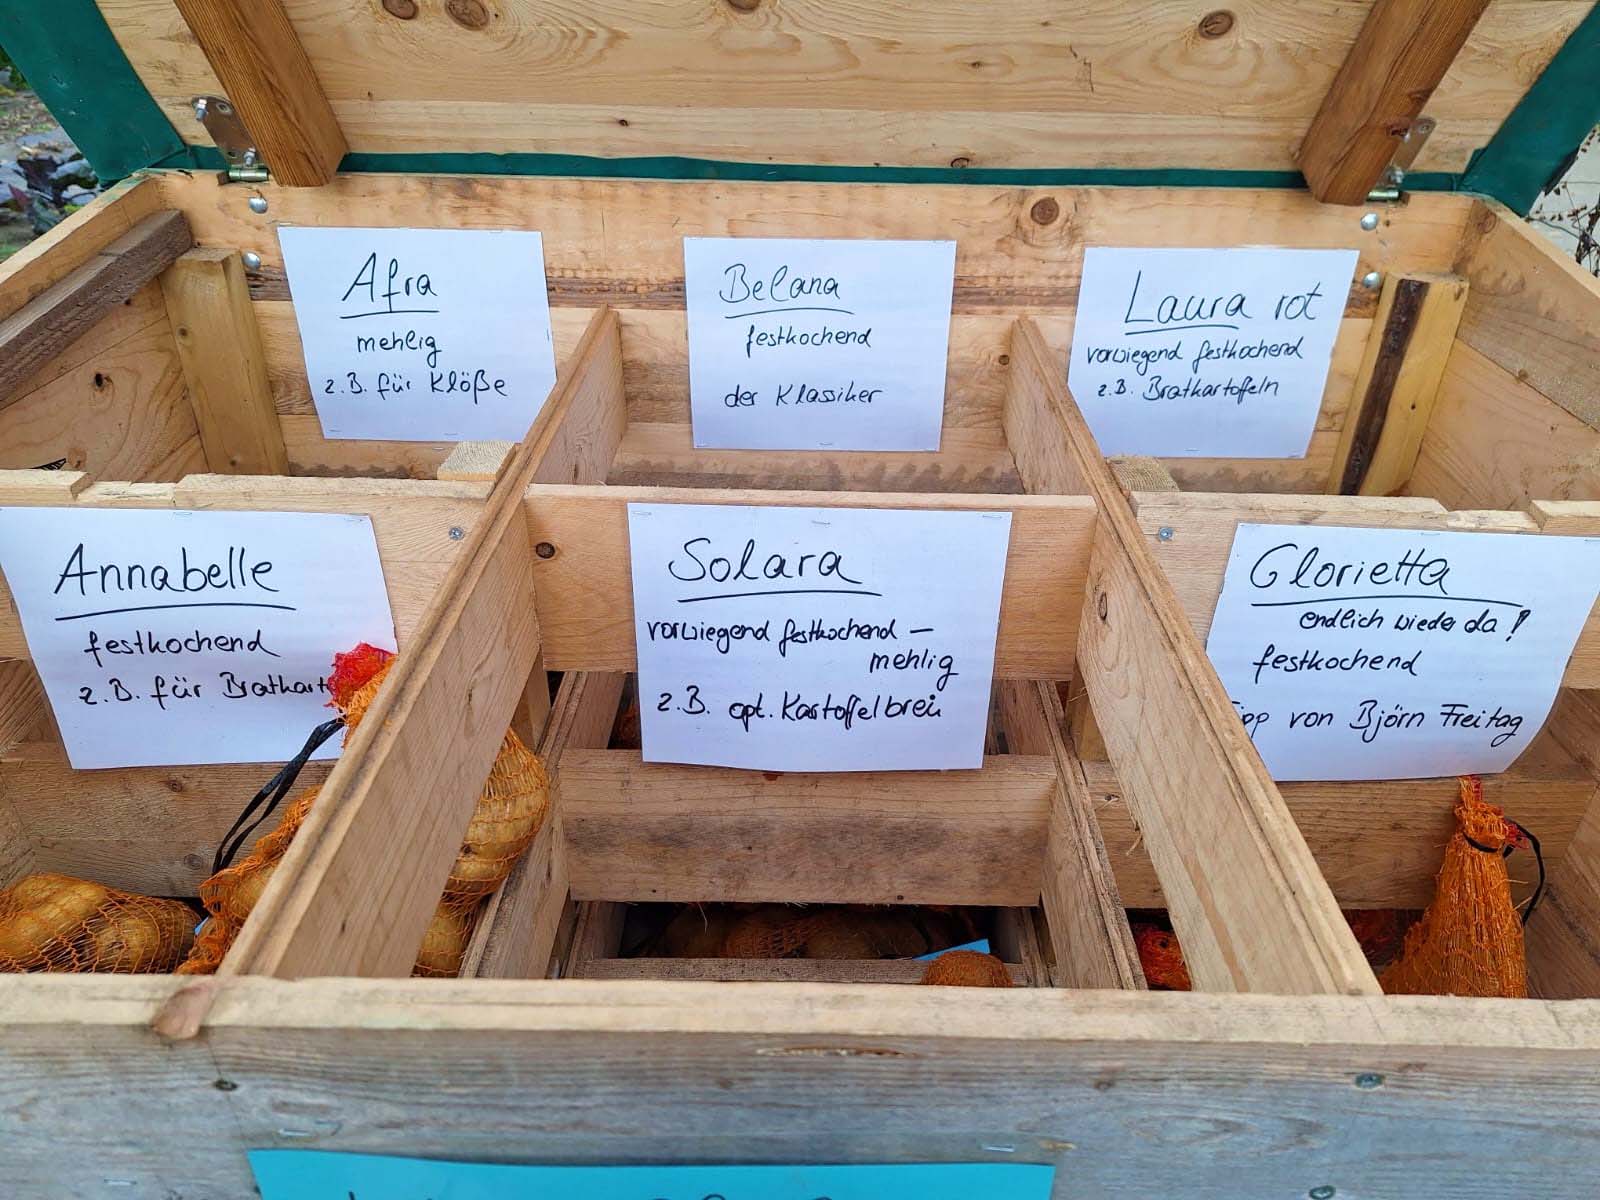 Afra
mehlig
z.B. für Klöße
Belana
festkochend
der Klassiker
Laura rot
vorwiegend festkochend
z.B. Bratkartoffeln
Annabelle
festkochend
z.B. für Bratkart
Solara
vorwiegend festkochend –
mehlig
z.B. opt. Kartoffelbrei
Glorietta
endlich wieder da!
festkochend
Tipp von Björn Freitag